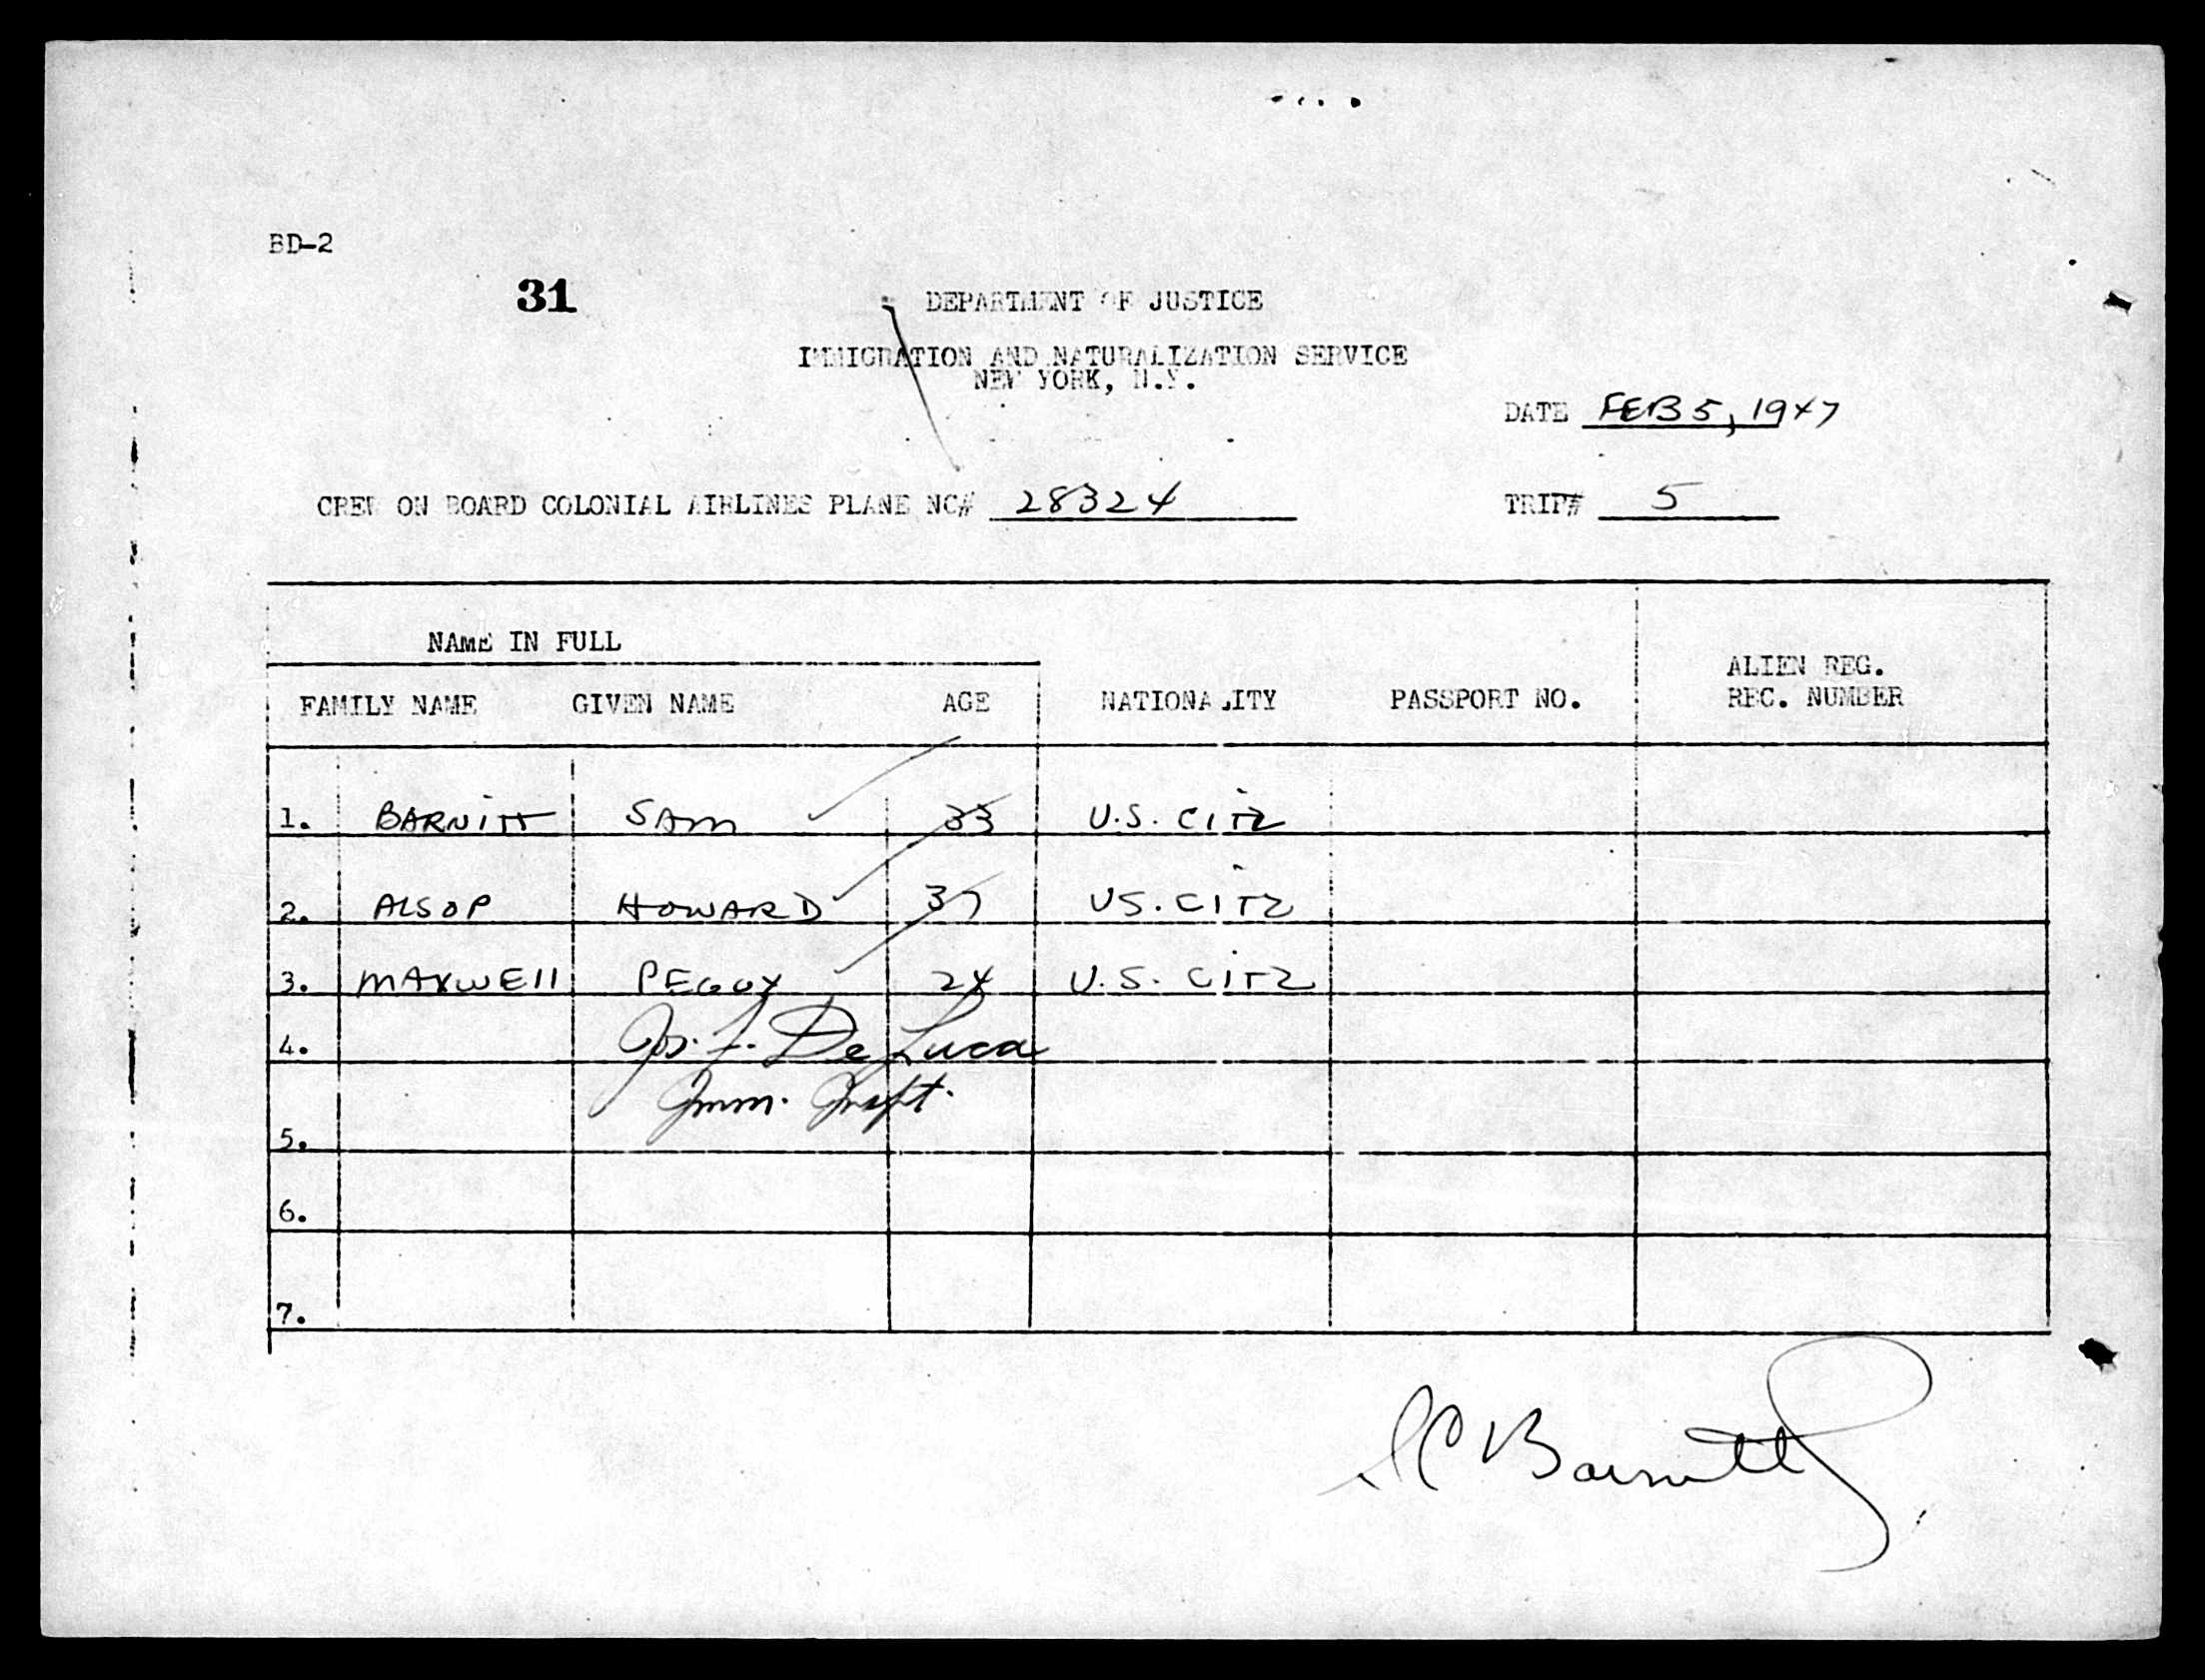 BD-2
31
DEPARTMENT OF JUSTICE
IMMIGRATION AND NATURALIZATION SERVICE
NEW YORK, N.Y.
DATE FEB 5, 1947
CREW ON BOARD COLONIAL AIRLINES PLANE NC# 28324 TRIP# 5
NAME IN FULL
FAMILY NAME GIVEN NAME AGE NATIONALITY PASSPORT NO. ALIEN REG. REC. NUMBER
1. BARNITT SAM 33 U.S. CITZ
2. ALSOP HOWARD 37 US. CITZ
3. MAXWELL PEGGY 24 U.S. CITZ
4. Jos. F. De Luca
Imm. Inspt.
5.
6.
7.
SC Barnitt